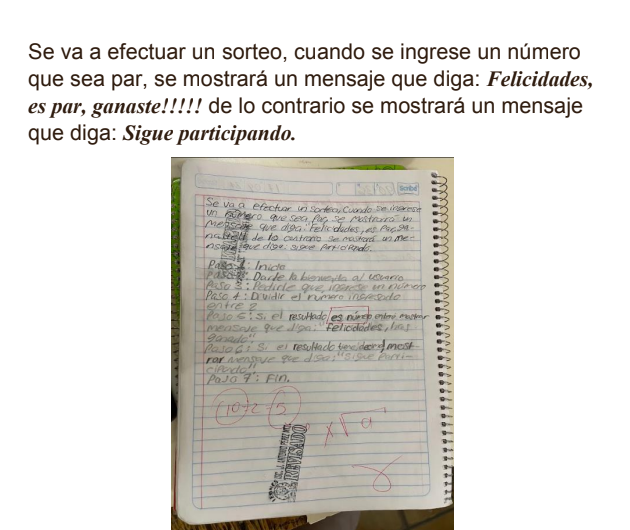 Se va a efectuar un sorteo, cuando se ingrese un número
que sea par, se mostrará un mensaje que diga: Felicidades,
es par, ganaste!!!!! de lo contrario se mostrará un mensaje
que diga: Sigue participando.
Scribe
Se va a efectuar un sorteo, Cuando se ingrese
un número que sea Par, se Mostrara un
Mensaje que diga: Felicidades, es Par, ga-
de lo contrario se mostrará un me-
que diga: sigue Participando.
Paso 1: Inicio
Paso 2: Darle la bienvenida al usuario
Paso 3: Pedirle que ingrese un número
Paso 4: Dividir el numero ingresado
entre 2
Paso 5: Si el resultado es número entero mostrar
mensaje que diga: "felicidades, has
ganado"
Paso 6: Si el resultado tiene decimal most
rar mensaje que diga: "Sigue Parti-
cipando"
Paso 7: Fin.
10÷2=5
REVISADO